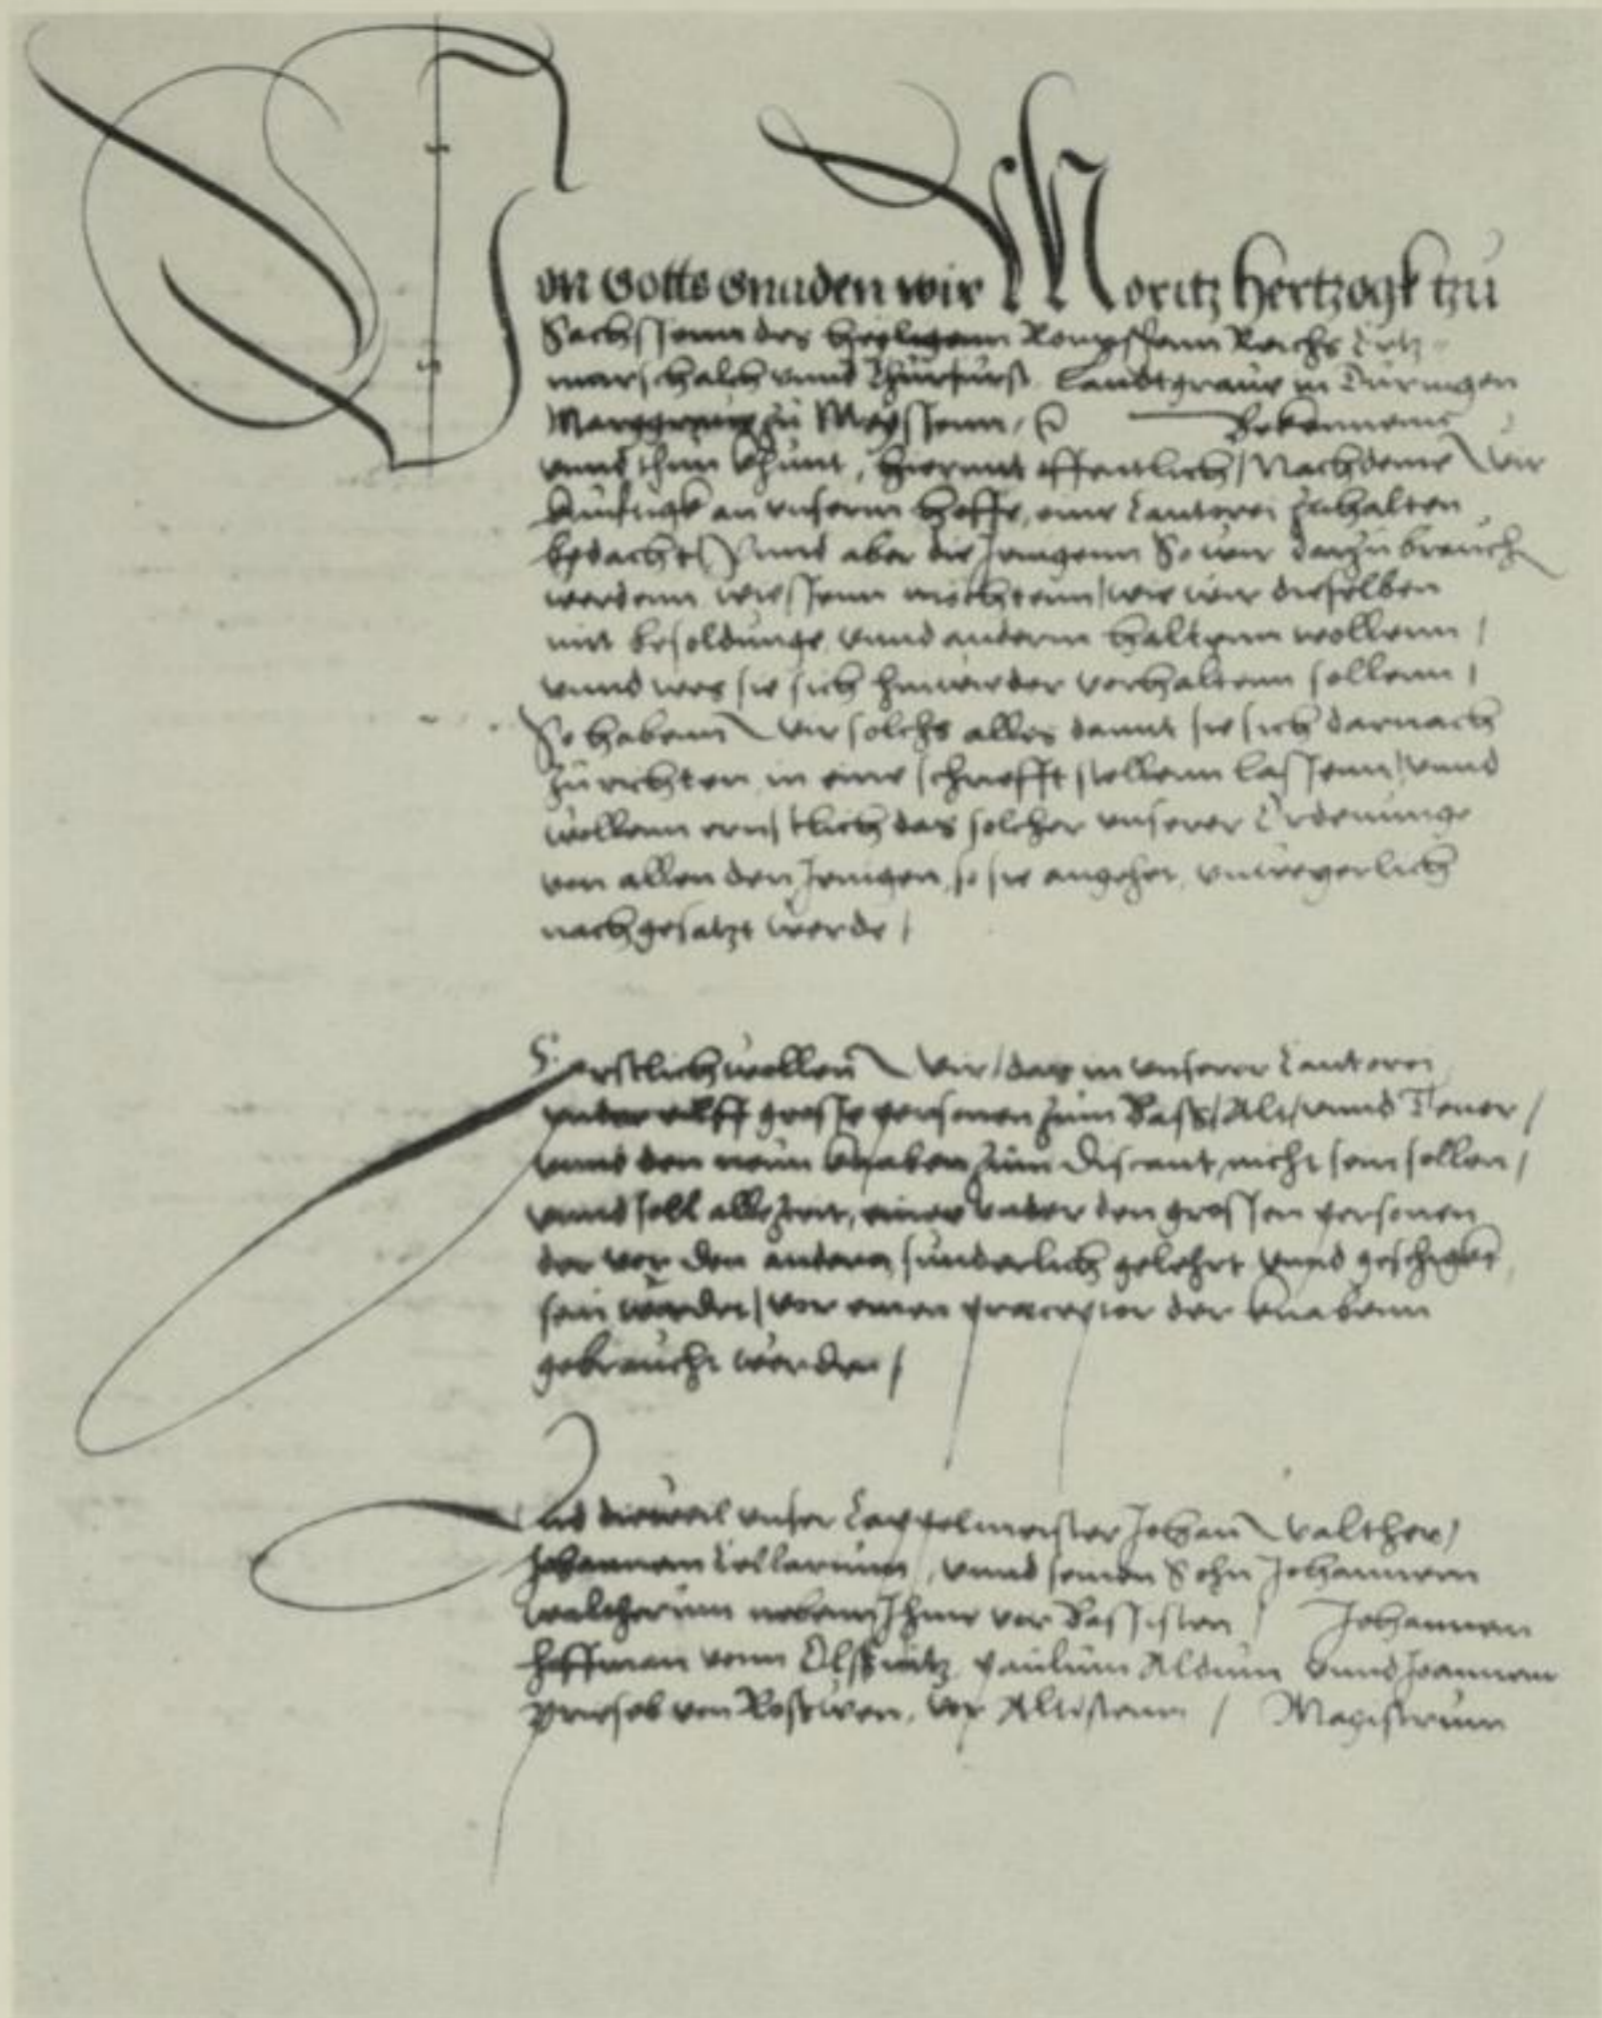 Von Gotts Gnaden wir Moritz Hertzogk tzu
Sachssenn des heyligenn Romysschenn Reichs Ertz
marschalch vnnd Churfurst Landtgraue in Duringen
Marggraue zu Meyssenn, Bekennenn
vnnd thun khunt, hiermit offentlich / Nachdeme Wir
kunftigk an vnserm Hoffe, eine Cantorei zuhalten
bedacht / Vnnd aber die Jenigenn So wir darzu brauch
werdenn wiessenn mochtenn / wie wir dieselben
mit besoldunge vnnd anderm haltenn wollenn /
vnnd wes sie sich hinwieder vorhaltenn sollenn /
So habenn Wir solchs alles damit sie sich darnach
zurichten in eine schriefft stellenn lassenn / vnnd
wollenn ernstlich das solcher vnserer Ordenunge
von allen den Jenigen, so sie angehet, vnwegerlich
nachgesatzt werde /
Erstlich wollen Wir / das in vnserer Cantorei
vnder eilff grosse personen zum Bass / Alt / vnnd Tenor /
vnnd den neun knaben zum Discant, nicht sein sollen /
vnnd soll allezeit, einer vnder den grossen personen
der vor den andern sunderlich gelehrt vnnd geschigkt
sein wurdet / vor einen preceptor der knabenn
gebraucht werden /
Vnd dieweil vnser Cappelmeister Johan Walther /
Johannem Cellarium, vnnd seinen Sohn Johannem
Waltherum nebenn Ihme vor Bassisten / Johannen
Hoffman vonn Olssnitz paulum Aldum vnnd Joannem
von Rosswen, vor Altistenn / Magistrum